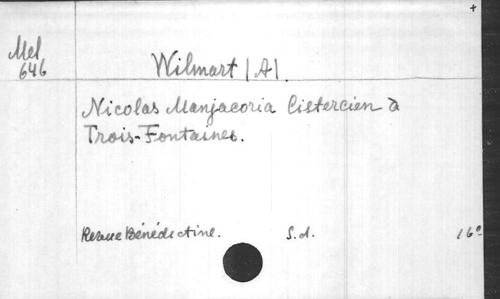 +
Mel
646
Wilmart |A|.
Nicolas Manjacoria Cistercien à
Trois-Fontaines.
Revue Bénédictine. S.d. 16º